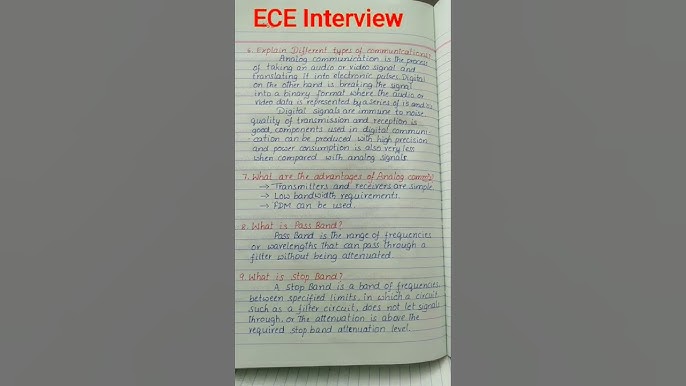 ECE Interview
6. Explain Different types of communications?
Analog communication is the process
of taking an audio or video signal and
translating it into electronic pulses. Digital
on the other hand is breaking the signal
into a binary format where the audio or
video data is represented by a series of 1s and 0s.
Digital signals are immune to noise
quality of transmission and reception is
good, components used in digital communi
-cation can be produced with high precision
and power consumption is also very less
when compared with analog signals.
7. What are the advantages of Analog
→ Transmitters and receivers are simple
→ Low bandwidth requirements.
→ FDM can be used.
8. What is Pass Band?
Pass Band is the range of frequencies
or wavelengths that can pass through a
filter without being attenuated.
9. What is stop Band?
A stop Band is a band of frequencies,
between specified limits, in which a circuit,
such as a filter circuit, does not let signals
through, or the attenuation is above the
required stop band attenuation level.